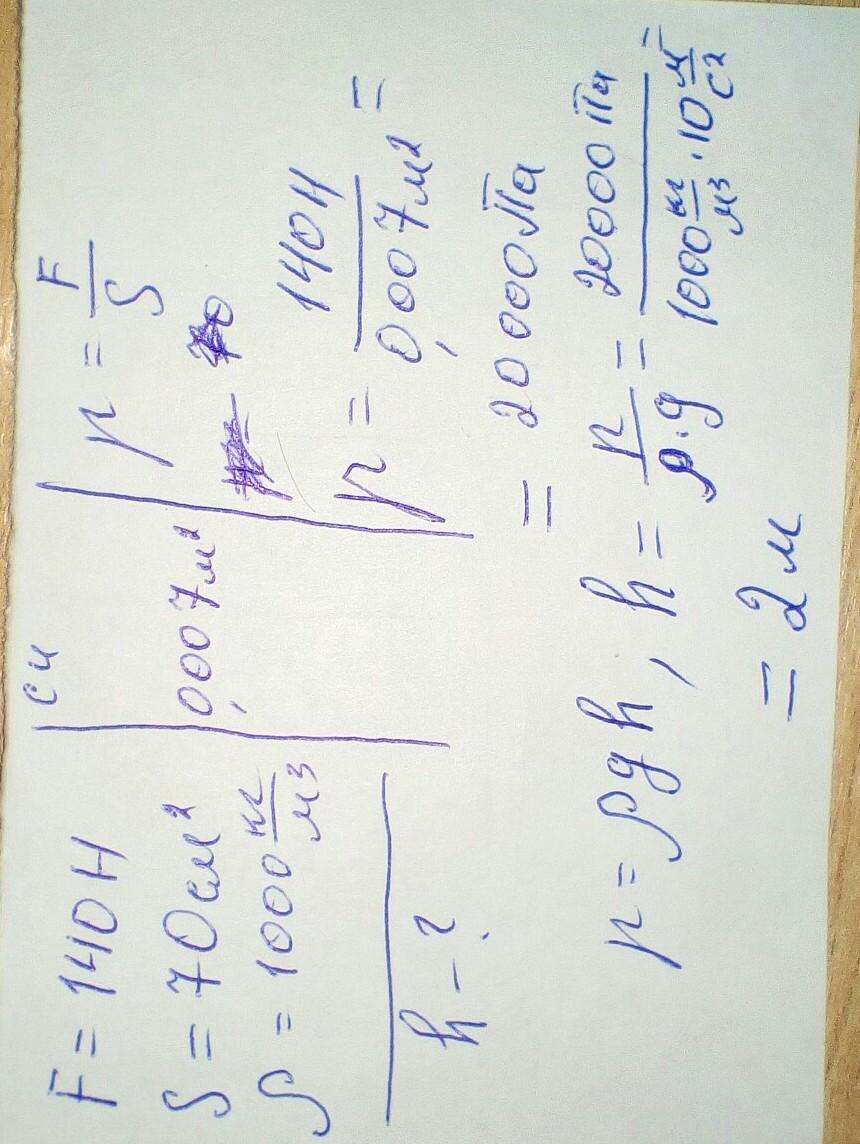 F = 140 Н
S = 70 см²
ρ = 1000 кг/м³
h - ?
СИ
0,007 м²
p = F/S
p = 140 Н / 0,007 м² =
= 20 000 Па
p = ρgh, h = p/ρ·g = 20000 Па / 1000 кг/м³ · 10 м/с² =
= 2 м